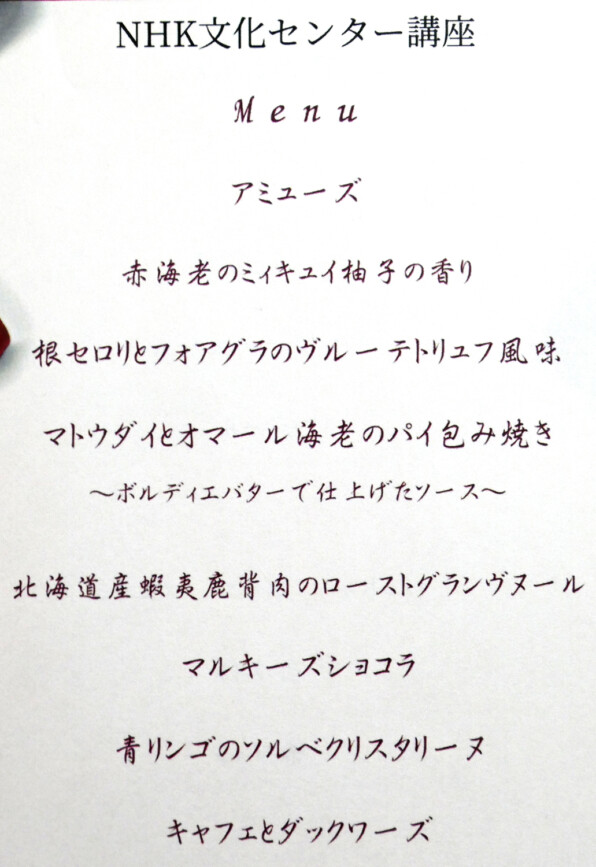 NHK文化センター講座
Menu
アミューズ
赤海老のミィキュイ柚子の香り
根セロリとフォアグラのヴルーテトリュフ風味
マトウダイとオマール海老のパイ包み焼き
～ボルディエバターで仕上げたソース～
北海道産蝦夷鹿背肉のローストグランヴヌール
マルキーズショコラ
青リンゴのソルベクリスタリーヌ
キャフェとダックワーズ